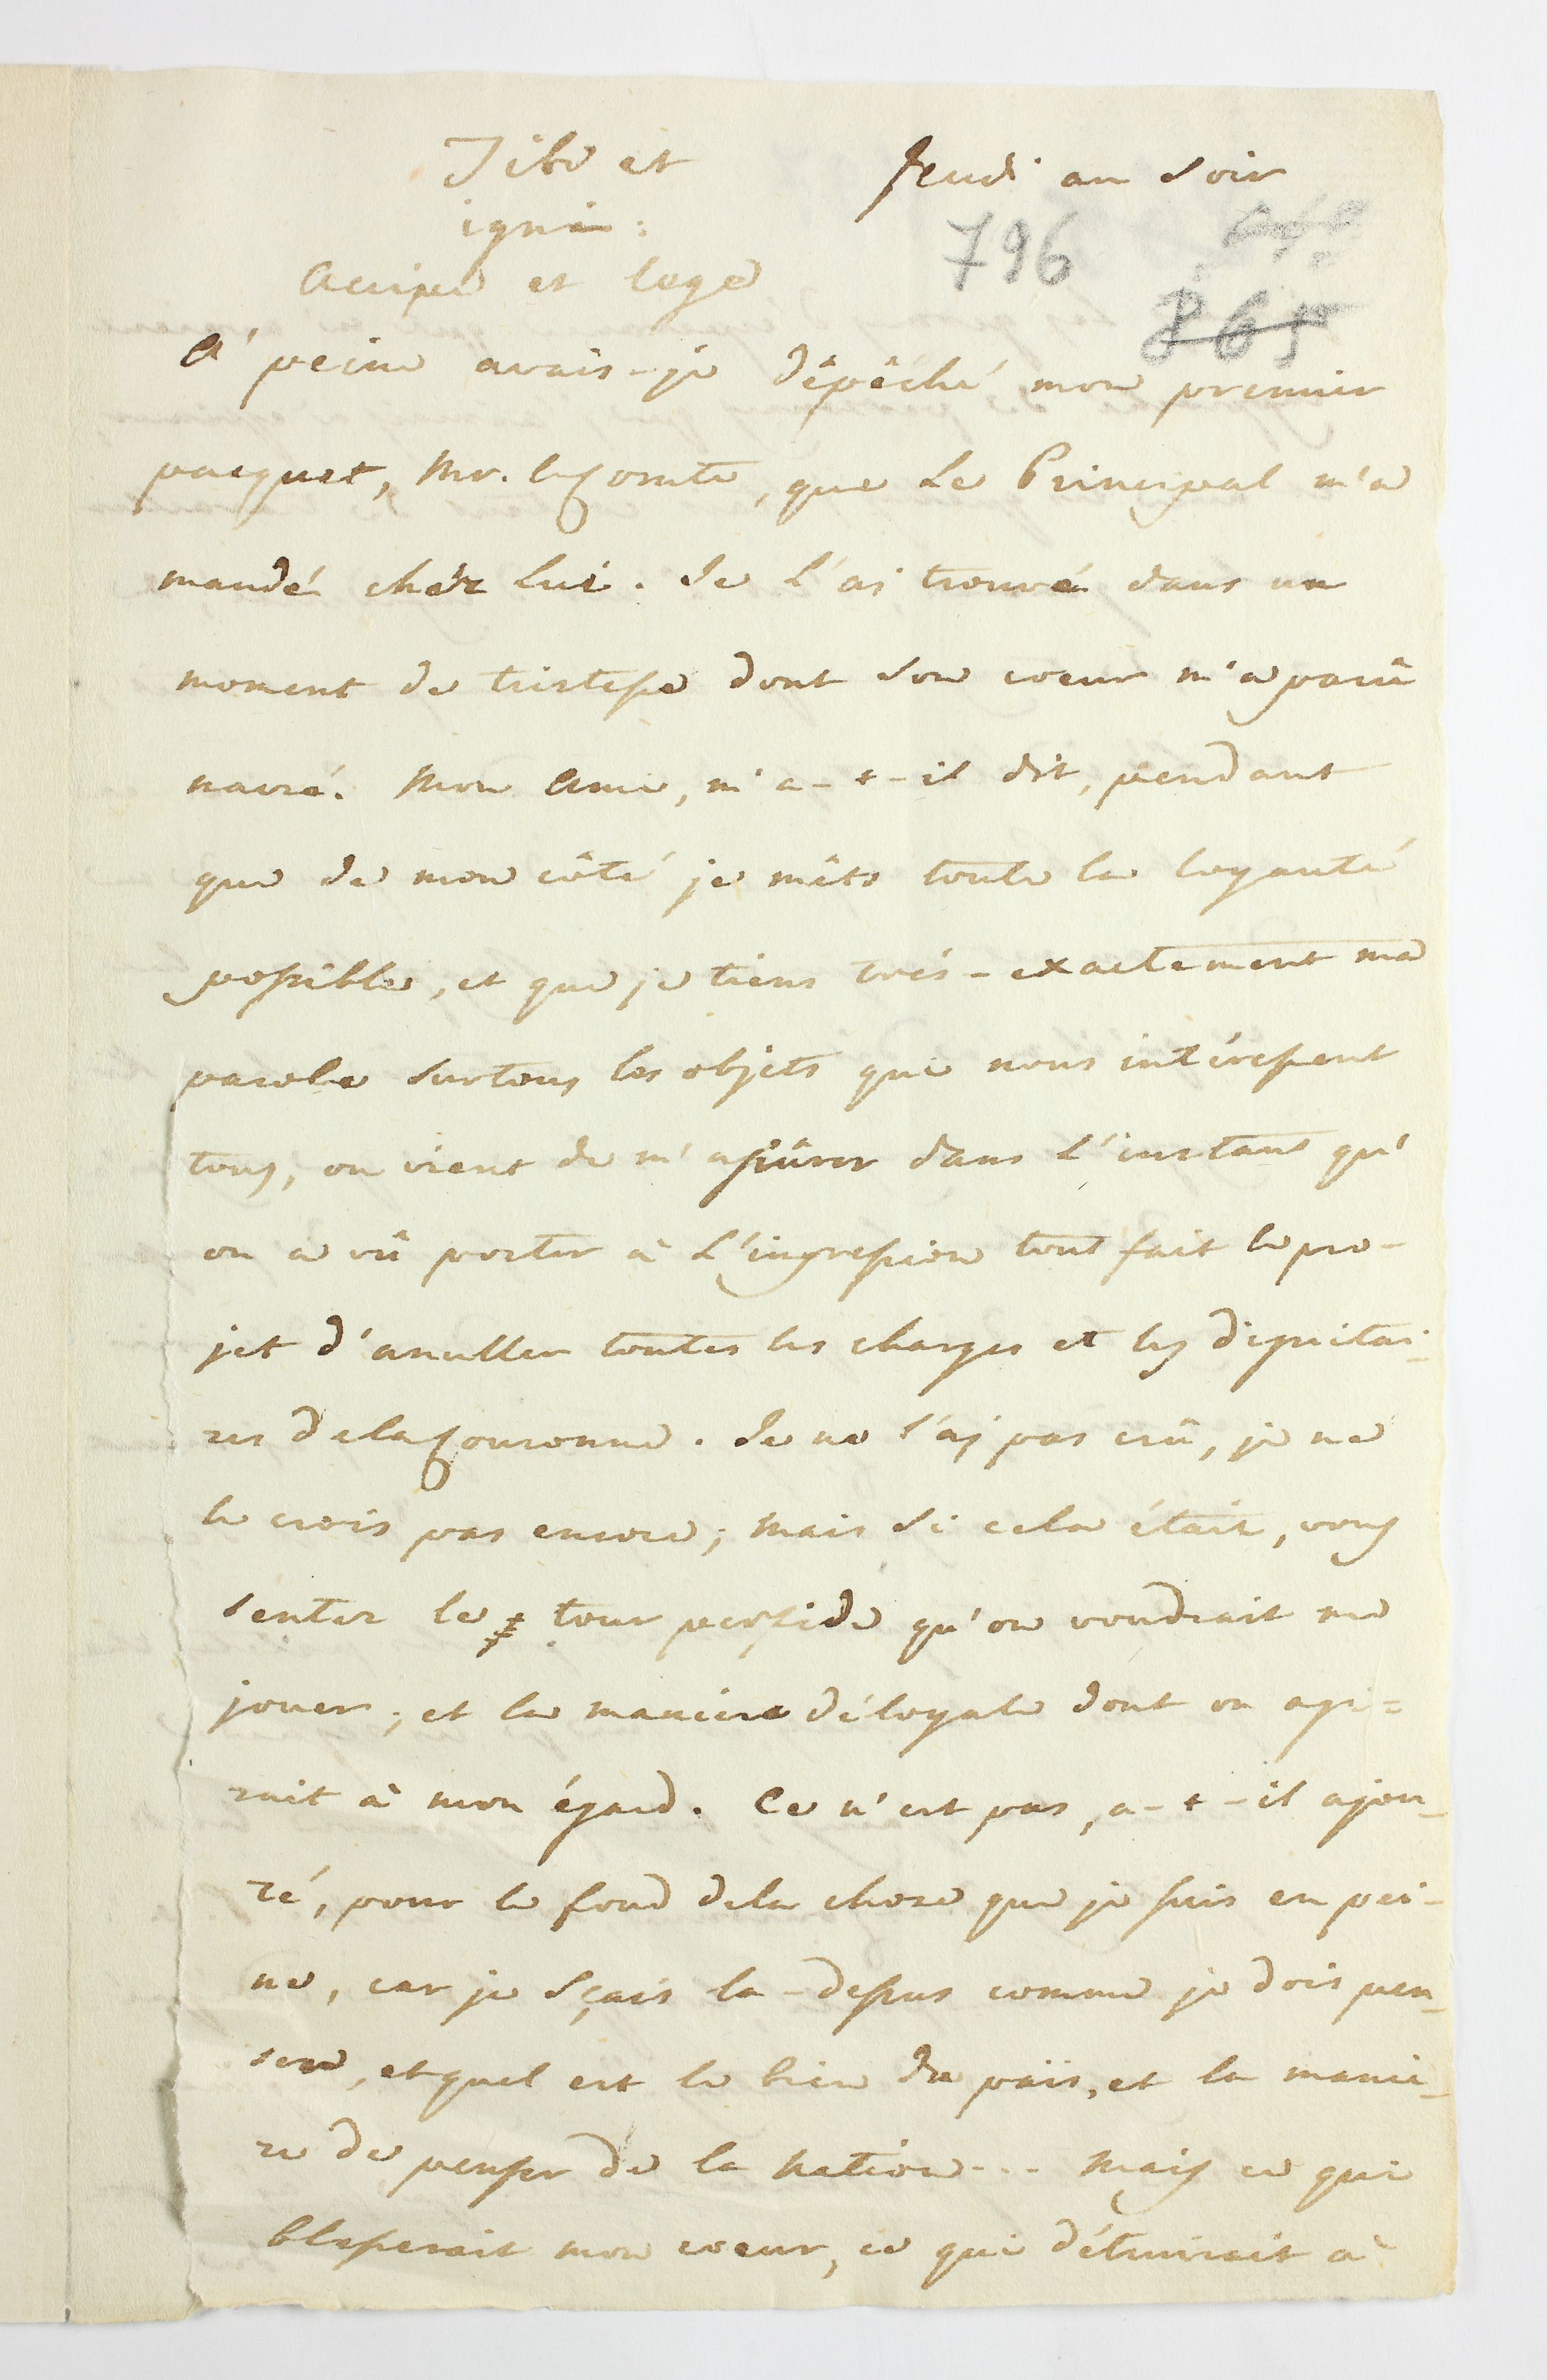 Tibi et
igni:
Accipe et lege
Jeudi au Soir
796
865
A' peine avais-je dépêché mon premier
pacquet, Mr. le Comte, que Le Principal m'a
mandé chéz Lui. Je l'ai trouvé dans un
moment de tristesse dont Son coeur m'a parû
navré. Mon Ami, m'a-t-il dit, pendant
que de mon côté je mêts toute la loyauté
possible, et que je tiens très-exactement ma
parole Surtous les objets qui nous intéressent
tous, on vient de m'assûrer dans L'instant qu'
on a vû porter à L'impression tout fait le pro-
jet d'anuller toutes les charges et les dignitai-
res de la Couronne. Je ne l'ai pas crû, je ne
le crois pas encore; mais Si cela était, vous
Sentez le tour perfide qu'on voudrait me
jouer, et la manière déloyale dont on agi=
rait à mon égard. Ce n'est pas, a-t-il ajou-
té, pour le fond dela chose que je suis en pei-
ne, car je Sçais la-dessus comme je dois pen-
ser, et quel est le bien du païs, et la maniè-
re de penser de la Nation... Mais ce qui
blesserait mon coeur, ce qui détruirait à